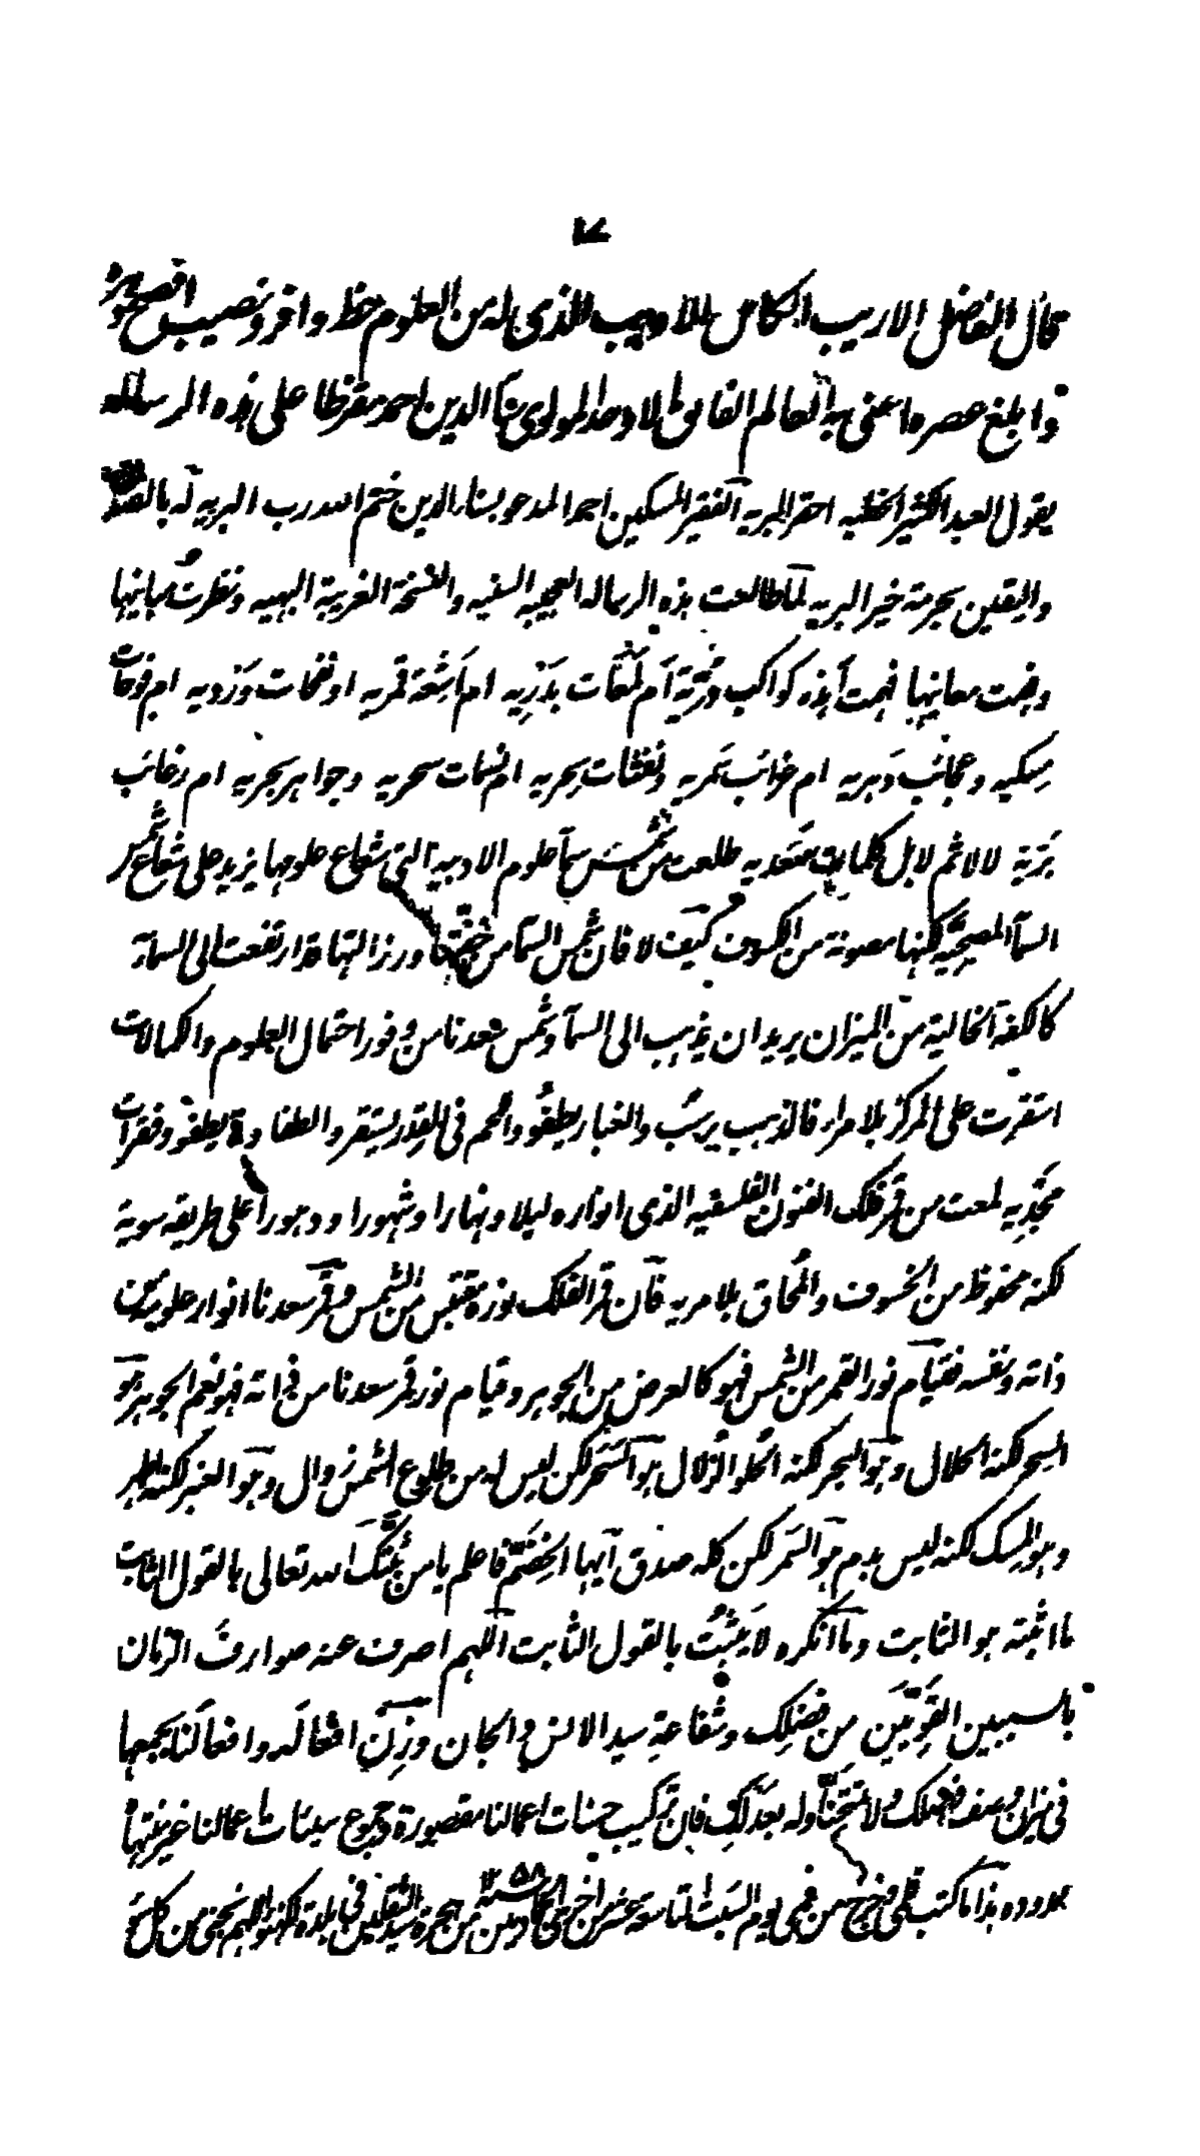 ١٧
قال الفاضل الاريب الكامل الاديب الذى له من العلوم حظ وافر ونصيب افصح
وابلغ عصره اعنى به العالم الفائق الاوحد المولوى ثناء الدين احمد مقرظا على هذه الرساله
يقول العبد الكثير الخطيه احقر البريه الفقير المسكين احمد المدعو بثناء الدين ختم الله رب البريه له بالصدق
واليقين بحرمة خير البريه لما طالعت هذه الرساله العجيبه السنيه والنسخة الغريبة البهيه ونظرت مبانيها
وفهمت معانيها فهمت أهذه كواكب درّيّة أم لمعات بدريه ام اشعة قمريه او نفحات وَرْديه ام فوحات
مسكيه وعجائب دهريه ام غرائب ثمريه ونفثات سحريه ام نسمات سحريه وجواهر بحريه ام رغائب
برّية لا لا ثم لا بل كلمات سعديه طلعت من شمس سمآ علوم الادبيه التى شعاع علومها يزيد على شعاع شمس
السمآ المصحيّة لكنها مصونة من الكسوف كيف لا فان شمس السمآ من خفتها ورزالتها قد ارتفعت الى السمآء
كالكفة الخالية من الميزان يريد ان يذهب الى السمآ وشمس سعدنا من وفور احتمال العلوم والكمالات
استقرت على المركز بلا مراء فالذهب يرسب والغبار يطفو واللحم فى القدر يستقر والطفاوة يطفو وفقرات
مجدِيه لمعت من قمر فلك الفنون الفلسفيه الذى انواره ليلا ونهارا وشهورا ودهورا على طريقه سوية
لكنه محفوظ من الخسوف والمُحاق بلا مريه فان قمر الفلك نوره مقتبس من الشمس وقمر سعدنا انوار علومه من
ذاته ونفسه فقيام نور القمر من الشمس فهو كالعرض من الجوهر وقيام نور قمر سعدنا من ذاته فهو نعم الجوهر هو
السحر لكنه الحلال وهو البحر لكنه الحلو الزلال هو السَحَر لكن ليس له من طلوع الشمس زوال وهو العنبر لكنه اطهر
وهو المسك لكنه ليس بدم هو السَمَر لكن كله صدق ايها الخِضَمّ فاعلم يا من ثبّتك الله تعالى بالقول الثابت
ما اثبته هو الثابت وما انكره لا يَثبُتُ بالقول الثابت اللهم اصرف عنه صوارف الزمان
بالسببين القويّين من فضلك وشفاعةِ سيد الانس والجان وزِنْ افعاله وافعالنا جميعها
فى ميزان وصف فضلك ولا تمتحنّا وله بعدلك فان تركيب حسنات اعمالنا مقصورة ومجموع سيئات اعمالنا غير منتهٍ
محدوده هذا ما كتب قلمى وخرج من فمى يوم السبت التاسع عشر من اخرى الجماديين سنة ١٢٥٨ من هجرة سيد الثقلين فى بلدة لكهنؤ اللهم نجنى من كل سوء